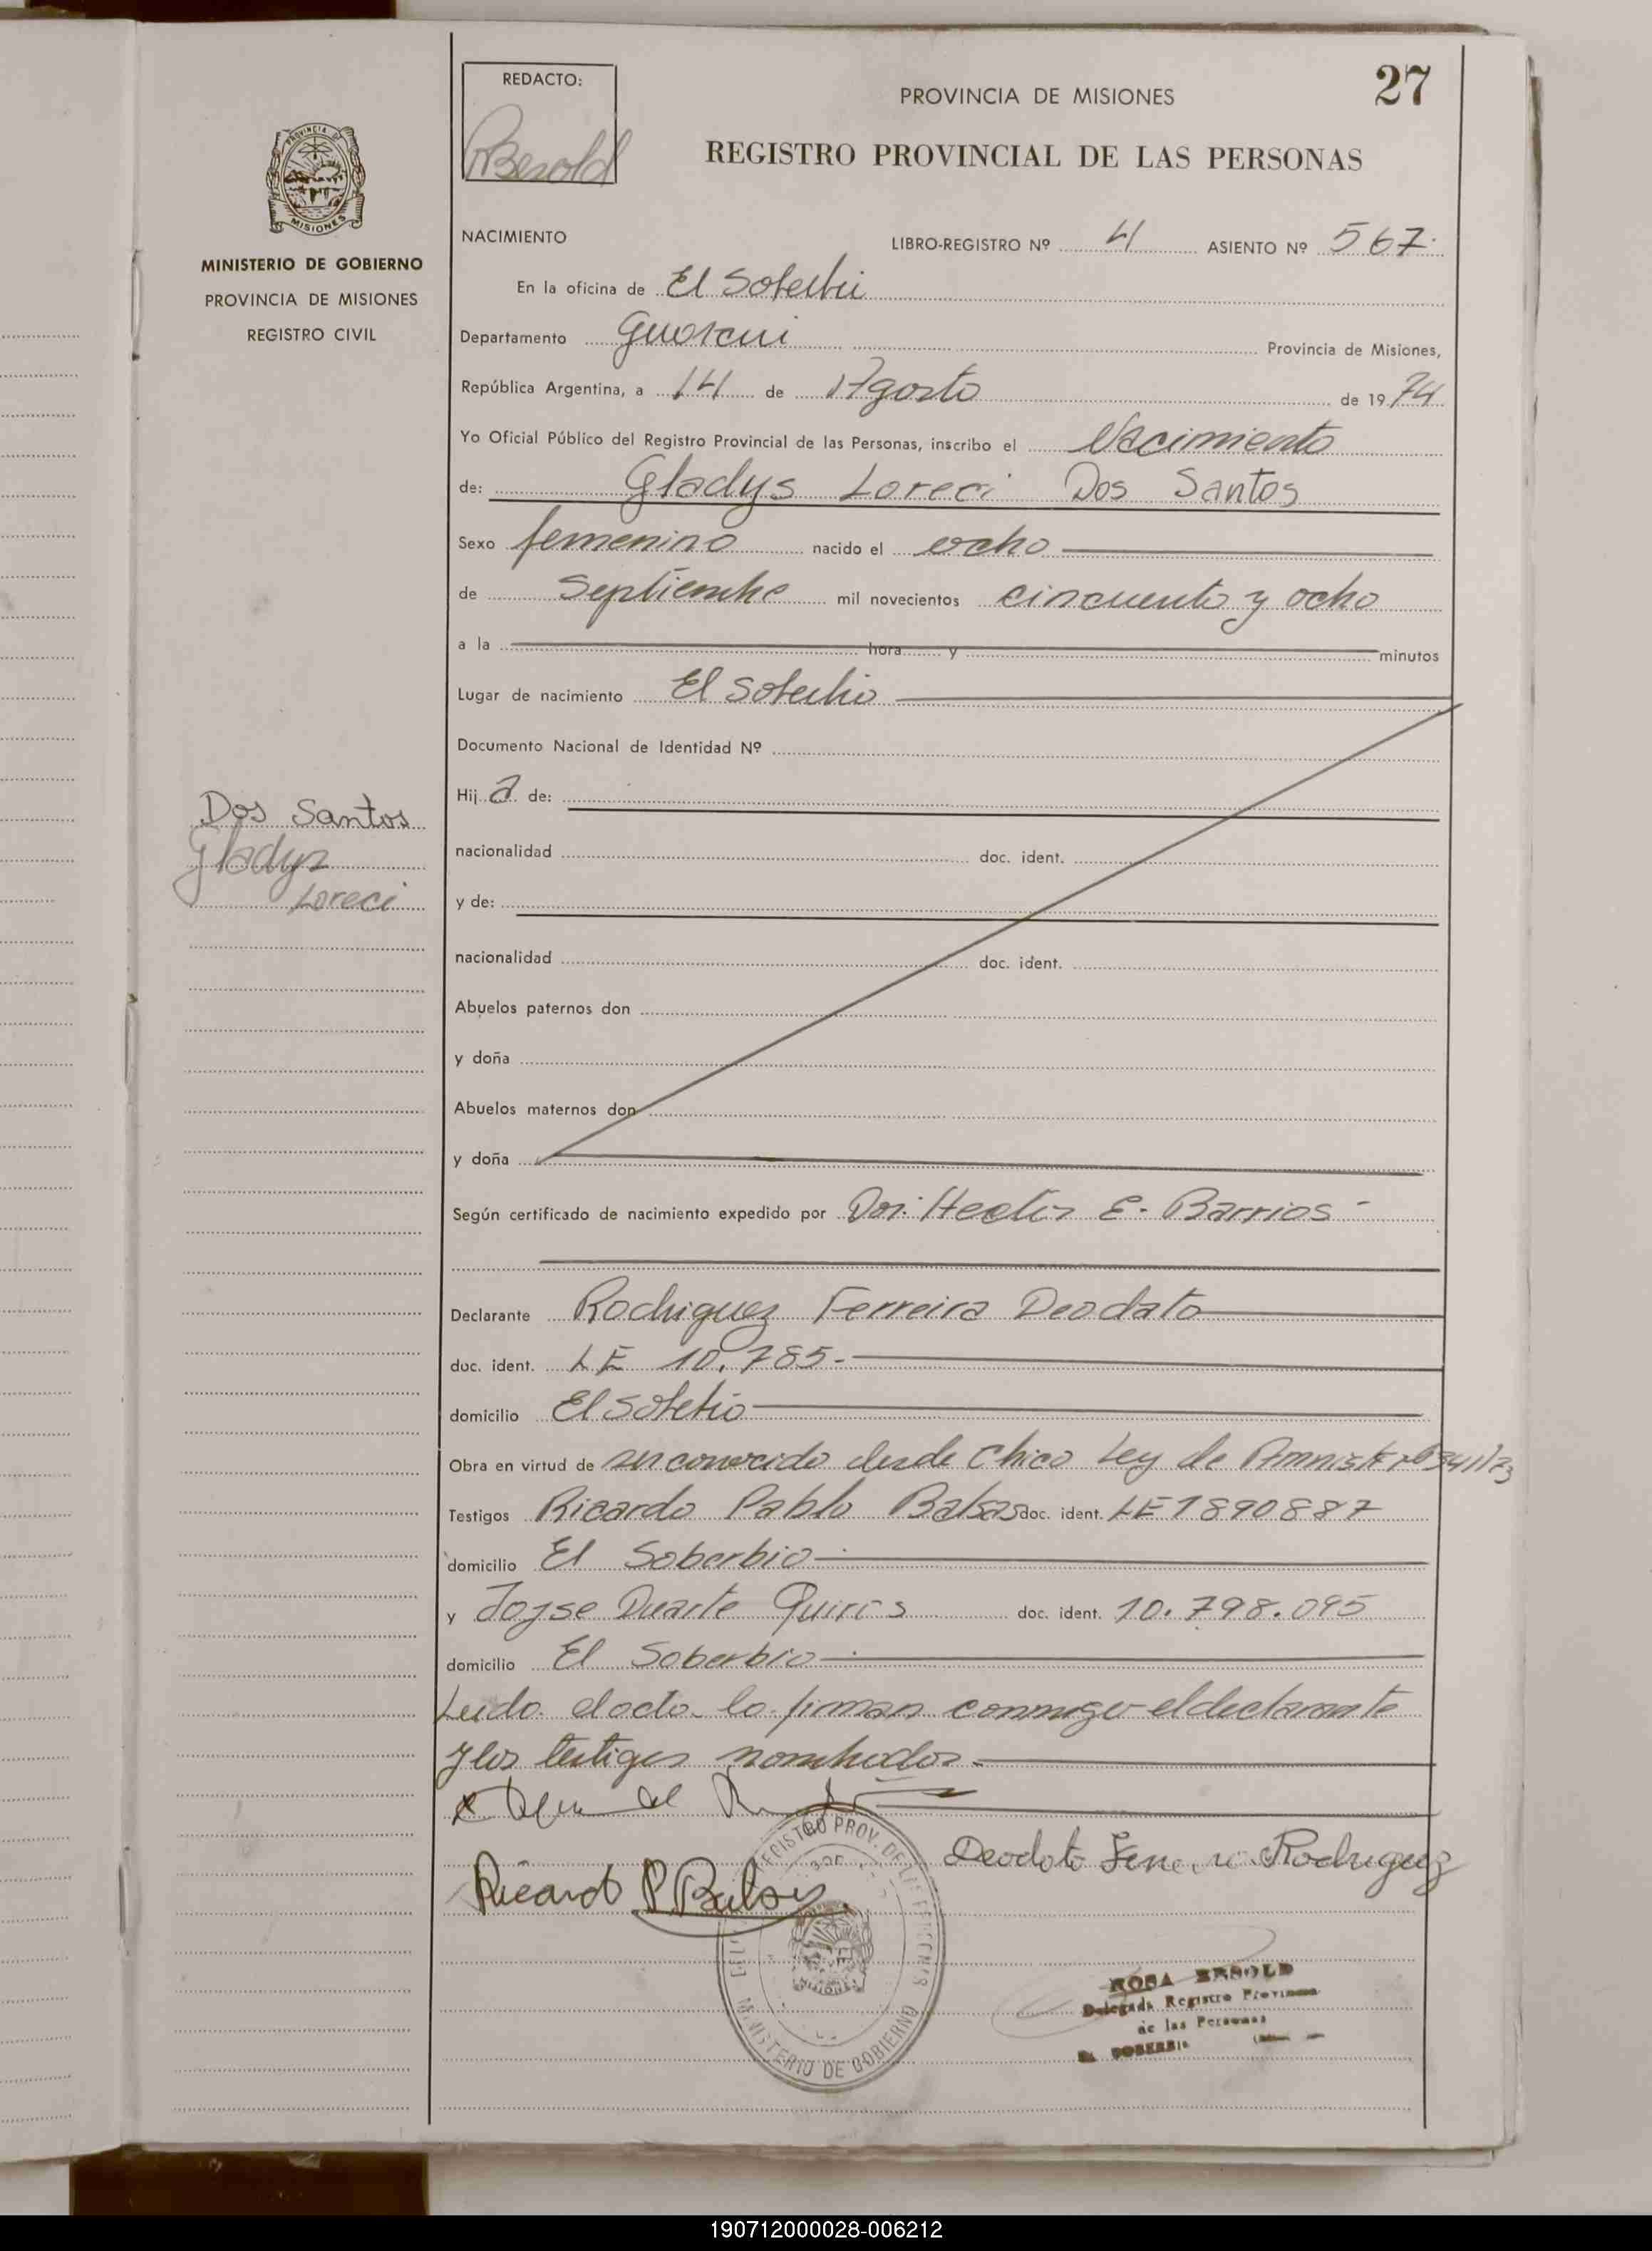 27
REDACTO:
PROVINCIA DE MISIONES
REGISTRO PROVINCIAL DE LAS PERSONAS
PROVINCIA DE
MISIONES
MINISTERIO DE GOBIERNO
PROVINCIA DE MISIONES
REGISTRO CIVIL
NACIMIENTO
LIBRO-REGISTRO Nº 4 ASIENTO Nº 567.
En la oficina de El Soberbio
Departamento Guarani Provincia de Misiones,
República Argentina, a 14 de Agosto de 1974
Yo Oficial Público del Registro Provincial de las Personas, inscribo el Nacimiento
de: Gladys Loreci Dos Santos
Sexo femenino nacido el ocho
de Septiembre mil novecientos cincuenta y ocho
a la hora y minutos
Lugar de nacimiento El Soberbio
Documento Nacional de Identidad Nº
Hij a de:
Dos Santos
Gladys
Loreci
nacionalidad doc. ident.
y de:
nacionalidad doc. ident.
Abuelos paternos don
y doña
Abuelos maternos don
y doña
Según certificado de nacimiento expedido por Dr. Hector E. Barrios
Declarante Rodriguez Ferreira Deodato
doc. ident. LE 10.785.
domicilio El Soberbio
Obra en virtud de conocido desde chico Ley de
Testigos Ricardo Pablo Balsas doc. ident. LE 1890887
domicilio El Soberbio
y Duarte Quiros doc. ident. 10.798.095
domicilio El Soberbio
Leido el acto lo firman conmigo el declarante
y los testigos nombrados.
Ricardo P. Balsas
Deodato Ferreira Rodriguez
MINISTERIO DE GOBIERNO
MISIONES
ROSA BESOLD
Delegada Registro Provincial
de las Personas
EL SOBERBIO
190712000028-006212